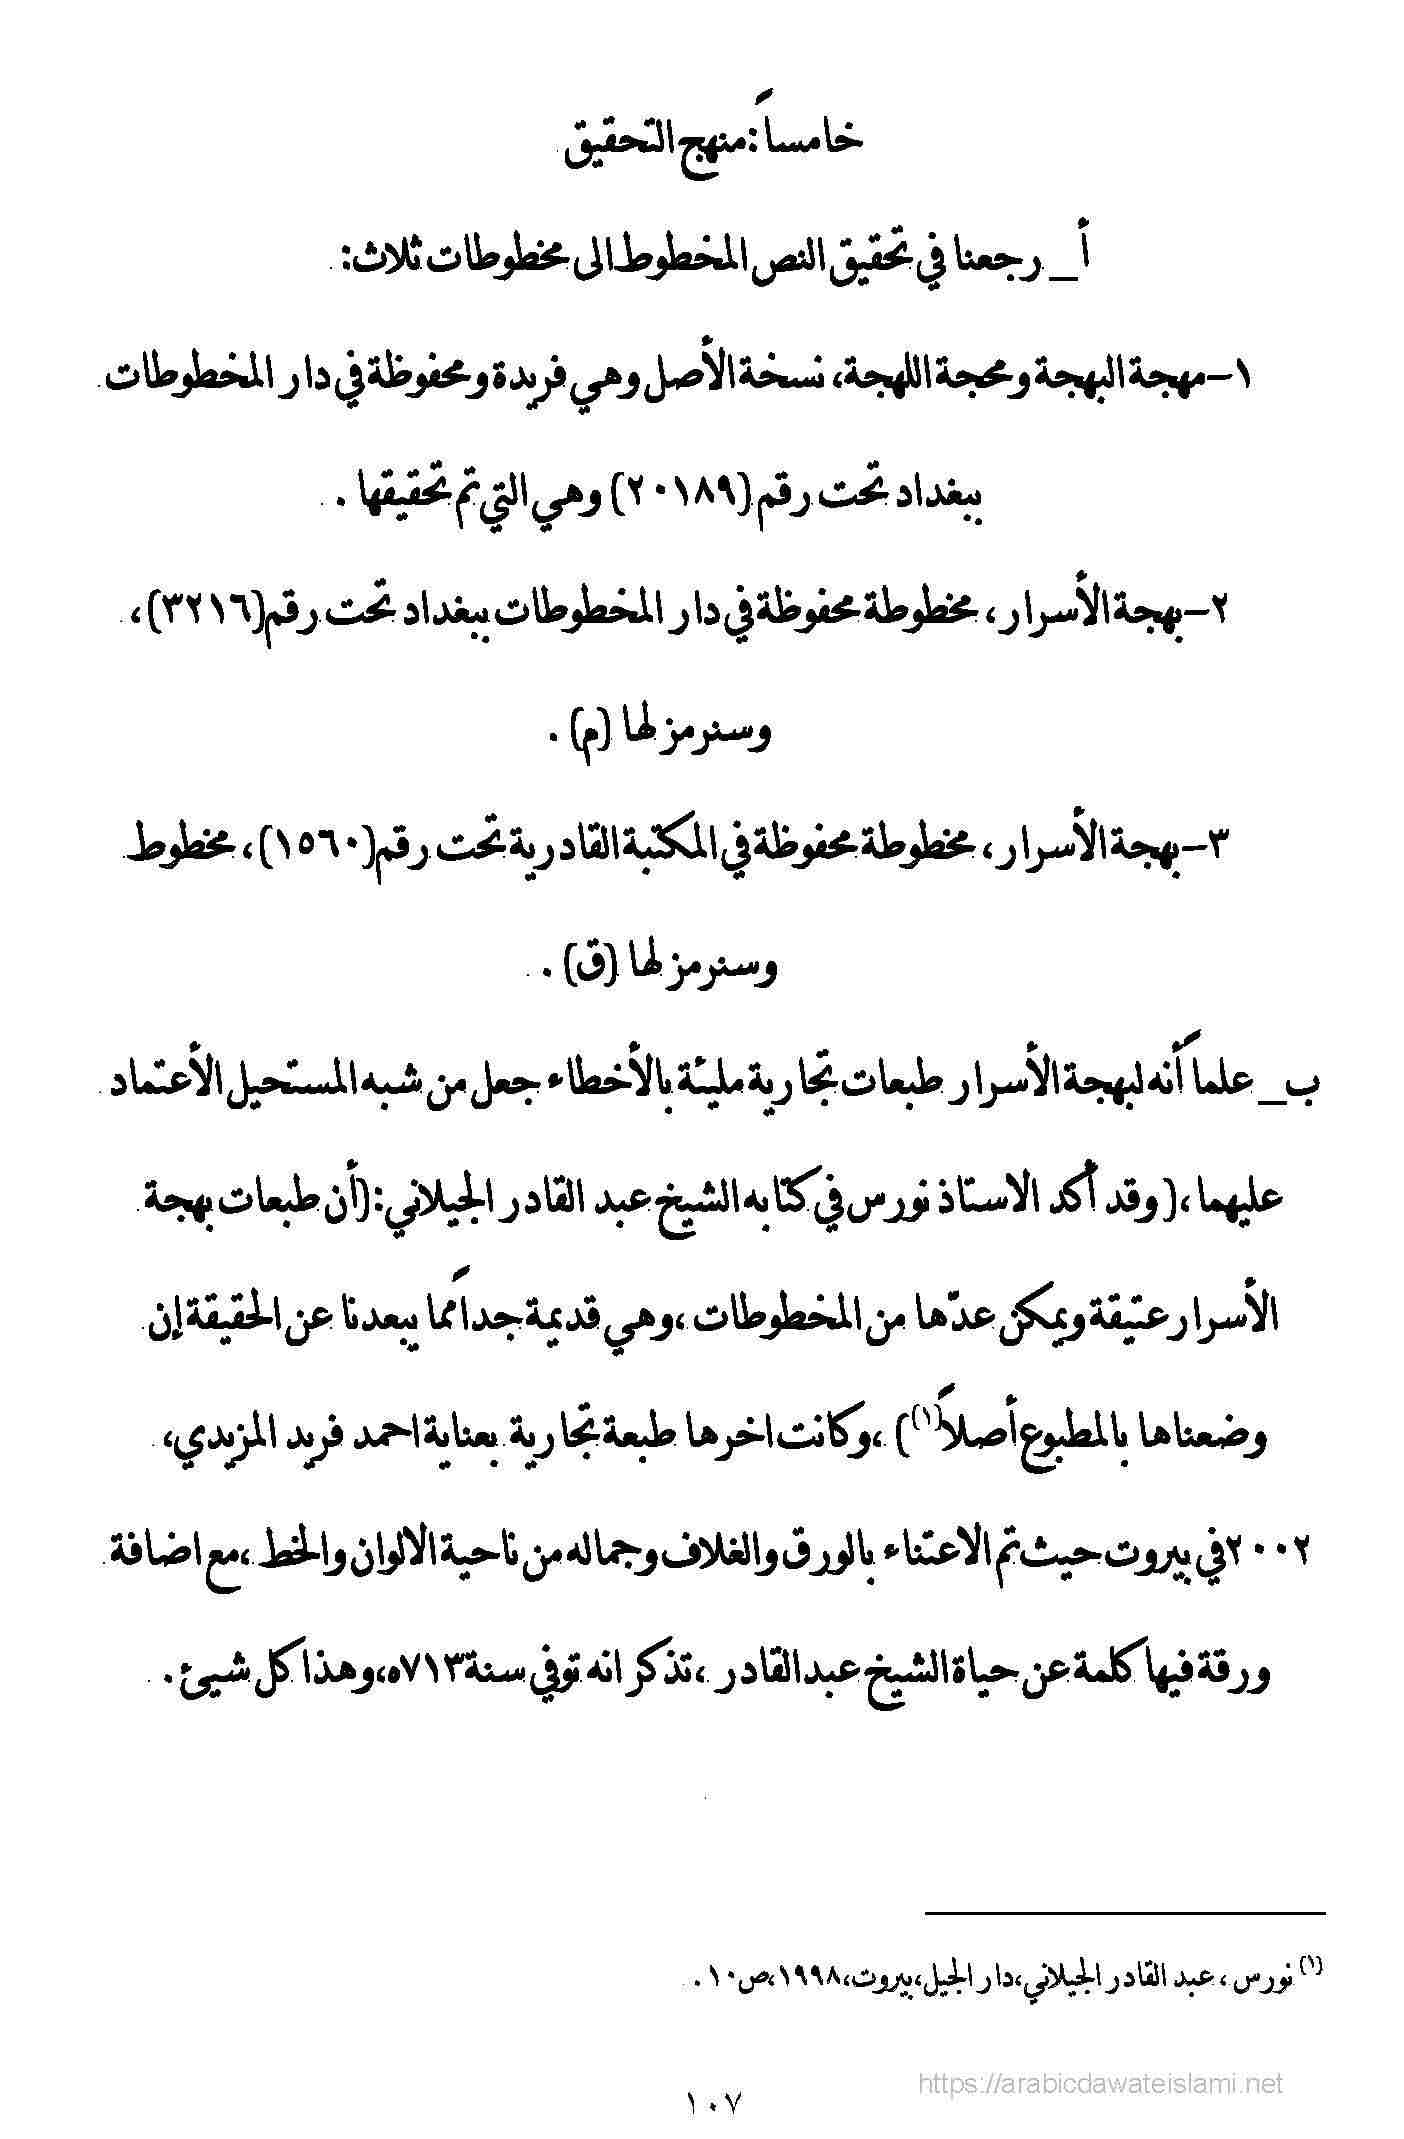 خامساً :منهج التحقيق
أ_ رجعنا في تحقيق النص المخطوط الى مخطوطات ثلاث:
١-مهجة البهجة ومحجة اللهجة، نسخة الأصل وهي فريدة ومحفوظة في دار المخطوطات
ببغداد تحت رقم (٢٠١٨٩) وهي التي تم تحقيقها .
٢-بهجة الأسرار، مخطوطة محفوظة في دار المخطوطات ببغداد تحت رقم(٣٢١٦)،
وسنرمز لها (م) .
٣-بهجة الأسرار، مخطوطة محفوظة في المكتبة القادرية تحت رقم(١٥٦٠)، مخطوط
وسنرمز لها (ق) .
ب_ علماً أنه لبهجة الأسرار طبعات تجارية مليئة بالأخطاء جعل من شبه المستحيل الأعتماد
عليهما ،( وقد أكد الاستاذ نورس في كتابه الشيخ عبد القادر الجيلاني:(أن طبعات بهجة
الأسرار عتيقة ويمكن عدّها من المخطوطات ،وهي قديمة جداً مما يبعدنا عن الحقيقة إن
وضعناها بالمطبوع أصلاً(١)) ،وكانت اخرها طبعة تجارية بعناية احمد فريد المزيدي،
٢٠٠٢في بيروت حيث تم الاعتناء بالورق والغلاف وجماله من ناحية الالوان والخط ،مع اضافة
ورقة فيها كلمة عن حياة الشيخ عبد القادر ،تذكر انه توفي سنة ٧١٣ه،وهذا كل شيئ .
(١) نورس ، عبد القادر الجيلاني،دار الجيل،بيروت،١٩٩٨،ص١٠ .
https://arabicdawateislami.net
١٠٧